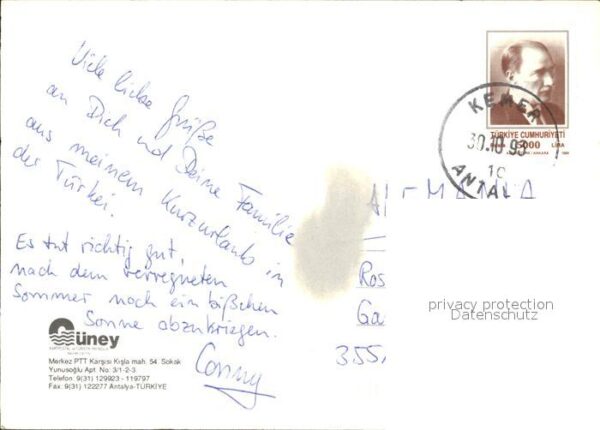 Viele liebe Grüße
an Dich und Deine Familie
aus meinem Kurzurlaub in
der Türkei.
Es tut richtig gut,
nach dem verregneten
Sommer noch ein bißchen
Sonne abzukriegen.
Conny
KEMER
30.10.93
16
ANTAL
TÜRKİYE CUMHURİYETİ
5000 LİRA
ALEMANIA
Ros
Ga
355
privacy protection
Datenschutz
Güney
Merkez PTT Karşısı Kışla mah. 54. Sokak
Yunusoğlu Apt. No: 3/1-2-3
Telefon: 9(31) 129923 - 119797
Fax: 9(31) 122277 Antalya-TÜRKİYE